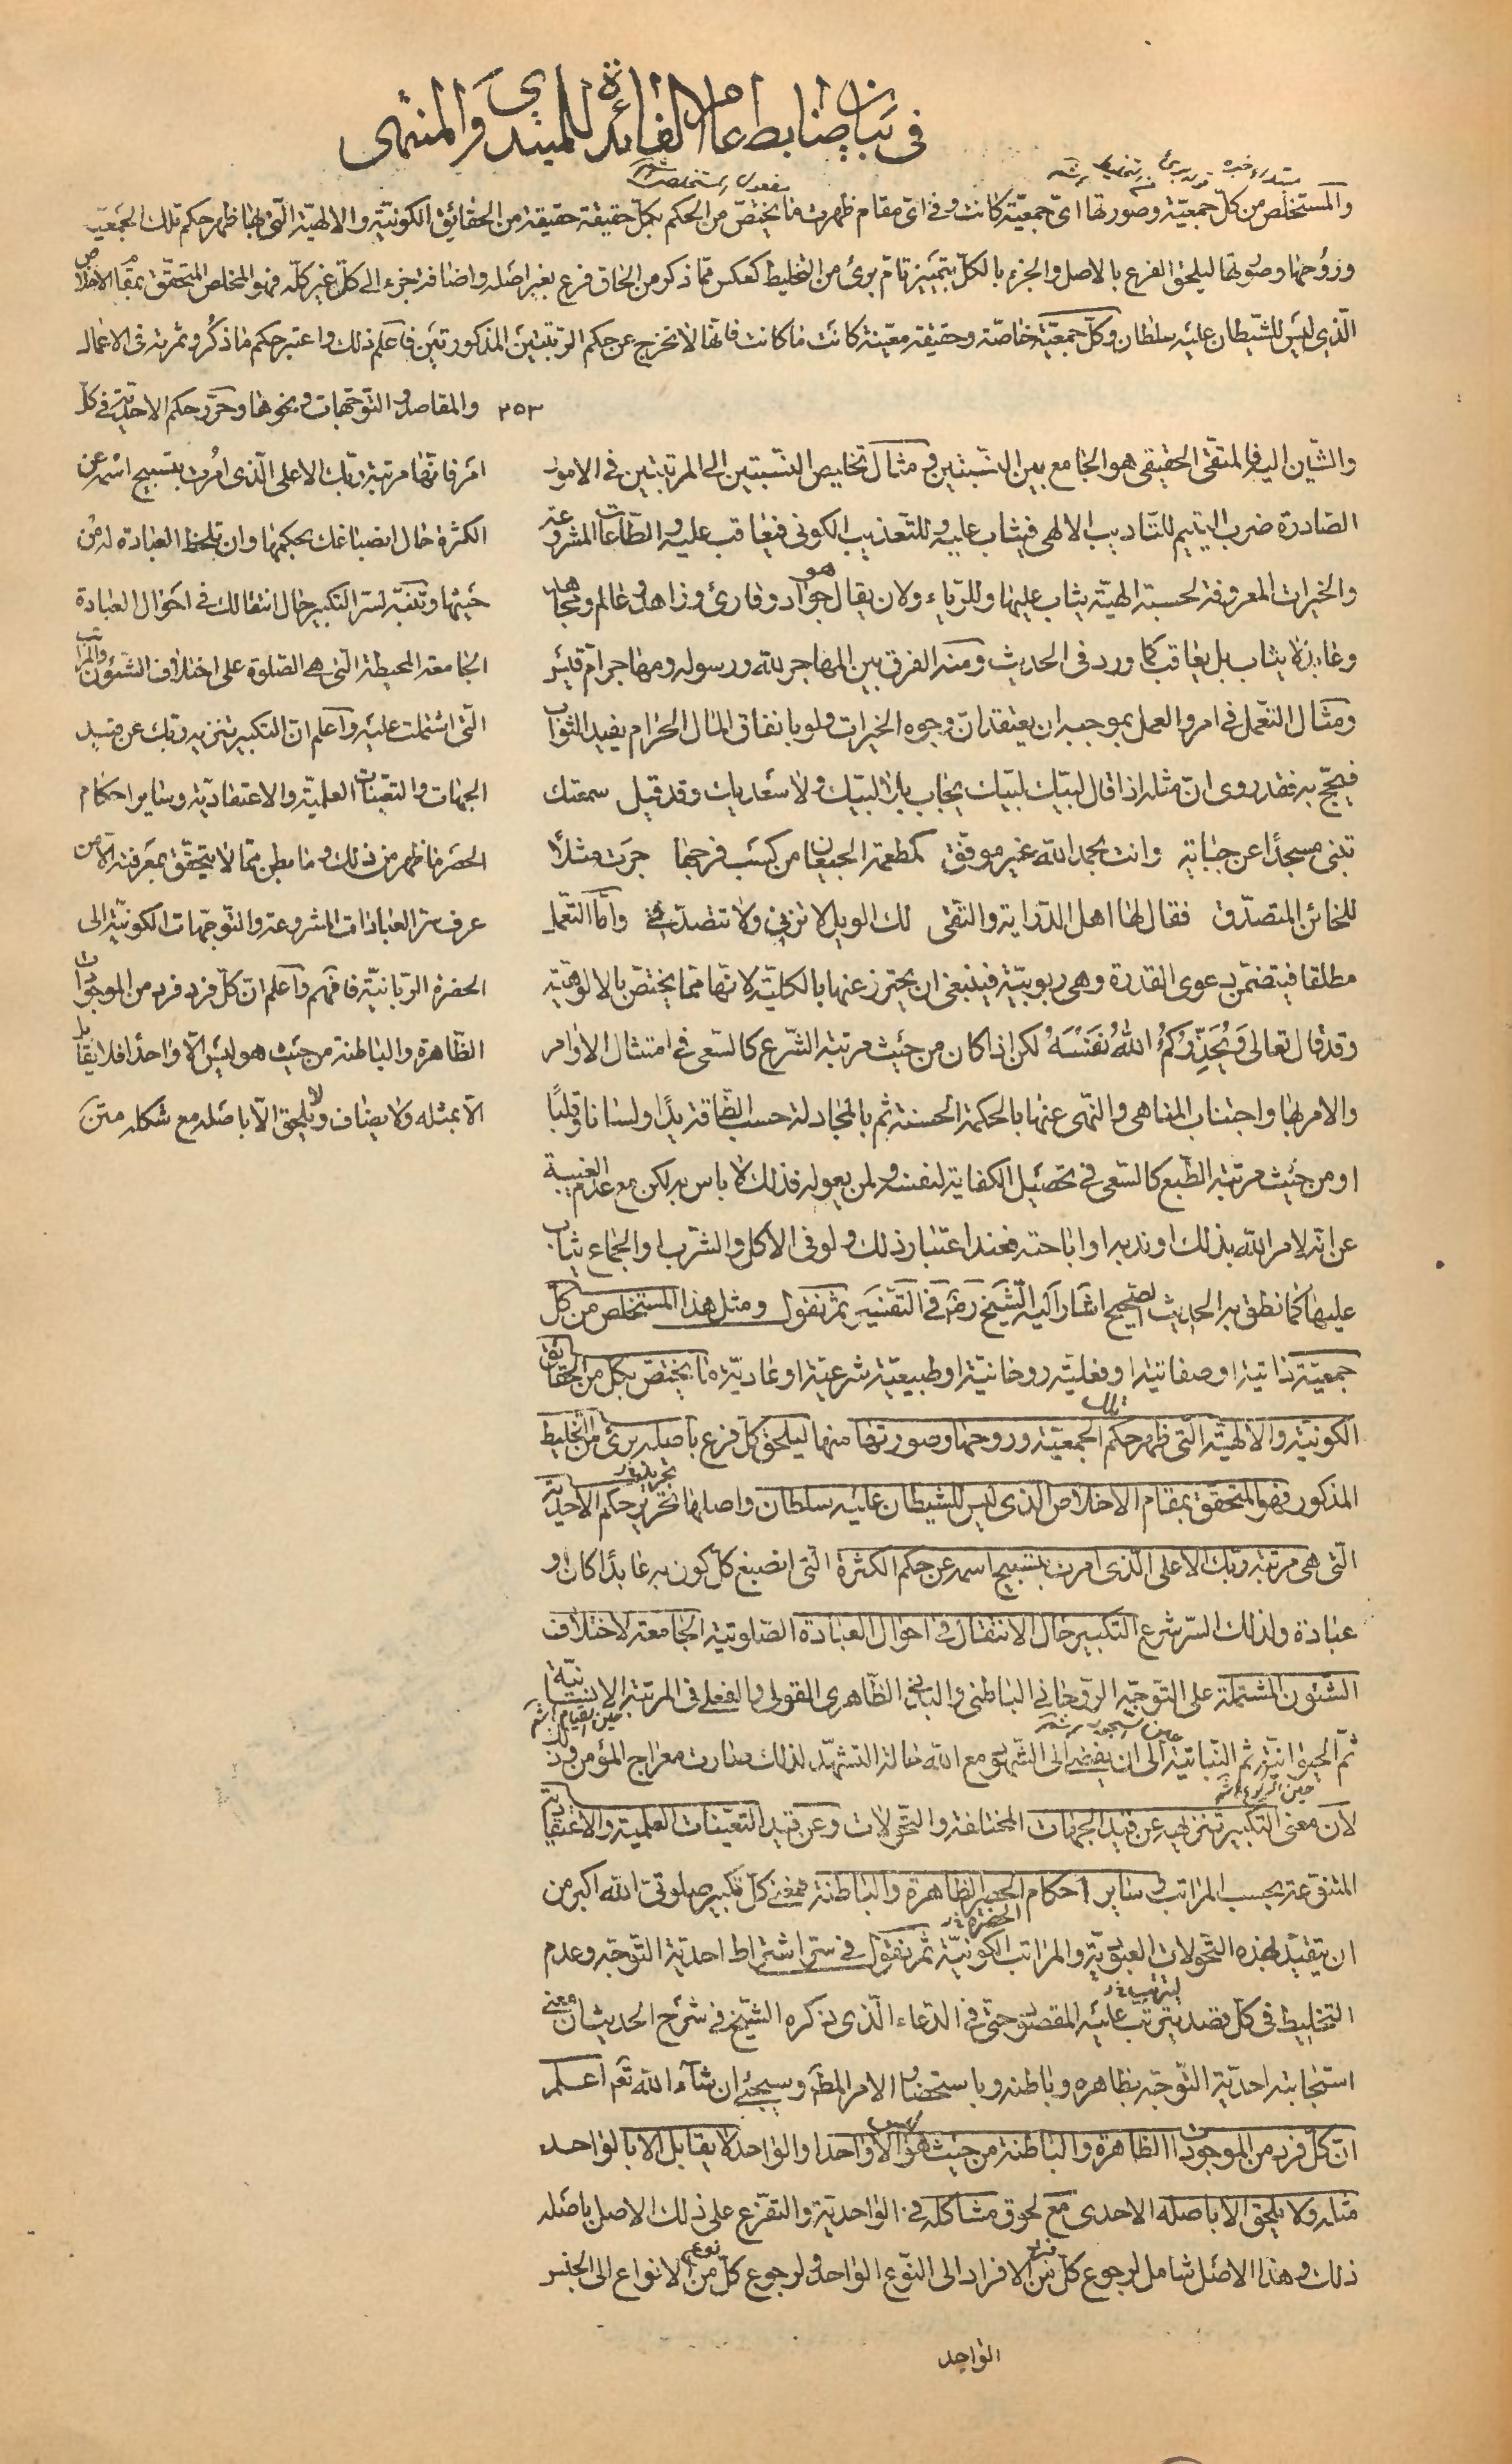 في بيان ضابط عام الفائدة للمبتدي والمنتهى
والمستخلص من كل جمعية وصورتها اى جمعية كانت وفى اى مقام ظهرت ما يختص من الحكم بكل حقيقة حقيقة من الحقائق الكونية والالهية التى بها ظهر حكم تلك الجمعية
وروحها وصورتها ليلحق الفرع بالاصل والجزء بالكل بتمييز تام برئ من التخليط كعكس مما ذكر من الحاق فرع بغير اصله واضافة جزء الى كل غير كله فهو المخلص المتحقق بمقام الاخلاص
الذى ليس للشيطان عليه سلطان وكل جمعية خاصة وحقيقة معينة كانت ما كانت فانها لا تخرج عن حكم الرتبتين المذكورتين فاعلم ذلك واعتبر حكم ما ذكر وثمرته فى الاعمال
٣٥٣ والمقاصد والتوجهات ونحوها وحرر حكم الاحدية فى كل
امر فانها مرتبة ربك الاعلى الذى امرت بتسبيح اسمه عن
الكثرة حال انصباغك بحكمها وان تلحظ العبادة له من
حيثها وتنبه لسر التكبير حال انتقالك فى احوال العبادة
الجامعة المحيطة التى هى الصلوة على اختلاف الشئون والمراتب
التى اشتملت عليه واعلم ان التكبير تنزيه ربك عن قيد
الجهات والتعينات العلمية والاعتقادية وساير احكام
الحصر ما ظهر من ذلك وما بطن مما لا يتحقق بمعرفته الا من
عرف سر العبادات المشروعة والتوجهات الكونية الى
الحضرة الربانية فافهم واعلم ان كل فرد فرد من الموجودات
الظاهرة والباطنة من حيث هو ليس الا واحدا فلا يقابل
الا بمثله ولا يضاف ولا يلحق الا باصله مع شكله متن
والشأن اليه فالمتقى الحقيقى هو الجامع بين النسبتين ومثال تخليص النسبتين الى المرتبتين فى الامور
الصادرة ضرب اليتيم للتاديب الالهى فيثاب عليه وللتعذيب الكونى فيعاقب عليه والطاعات المشروعة
والخيرات المعروفة لحسبة الهية يثاب عليها وللرياء ولان يقال هو جواد وقارئ وزاهد وعالم ومجاهد
وغاز لا يثاب بل يعاقب كما ورد فى الحديث ومنه الفرق بين المهاجر لله ورسوله ومهاجر ام قيس
ومثال التعمل فى امر والعمل بموجبه ان يعتقد ان وجوه الخيرات ولو بانفاق المال الحرام يفيد الثواب
فيحج به فقد روى ان مثله اذا قال لبيك لبيك يجاب بلا لبيك ولا سعديك وقد قيل سمعتك
تبنى مسجدا عن جباية وانت بحمد الله غير موفق كمطعمة الجيعان من كسب فرجها جرت مثلا
للخائن المتصدق فقال لها اهل الدراية والتقى لك الويل لا تزنى ولا تتصدقى واما التعمل
مطلقا فيتضمن دعوى القدرة وهى ربوبية فينبغى ان يحترز عنها بالكلية لانها مما يختص بالالوهية
وقد قال تعالى ويحذركم الله نفسه لكن اذا كان من حيث مرتبة الشرع كالسعى فى امتثال الاوامر
والامر بها واجتناب المناهى والنهى عنها بالحكمة الحسنة ثم بالمجادلة حسب الطاقة يدا ولسانا وقلبا
او من حيث مرتبة الطبع كالسعى فى تحصيل الكفاية لنفسه ولمن يعوله فذلك لا باس به لكن مع عدم الغيبة
عن انه لامر الله بذلك او ندبه او اباحته فعند اعتبار ذلك ولو فى الاكل والشرب والجماع يثاب
عليها كما نطق به الحديث الصحيح اشار اليه الشيخ رضه فى التفسير ثم نقول ومثل هذا المستخلص من كل
جمعية ذاتية او صفاتية او فعلية روحانية او طبيعية شرعية او عادية ما يختص بكل من الحقائق
الكونية والالهية التى ظهر حكم تلك الجمعية وروحها وصورتها منها ليلحق كل فرع باصله برئ من التخليط
المذكور فهو المتحقق بمقام الاخلاص الذى ليس للشيطان عليه سلطان واصلها تحرير حكم الاحدية
التى هى مرتبة ربك الاعلى الذى امرت بتسبيح اسمه عن حكم الكثرة التى انصبغ كل كون به عابدا كان او
عبادة ولذلك السر شرع التكبير حال الانتقال فى احوال العبادة الصلوتية الجامعة لاختلاف
الشئون المشتملة على التوجه الروحانى الباطنى والبدنى الظاهرى القولى والفعلى فى المرتبة الانسانية
ثم الحيوانية ثم النباتية الى ان يفضى الى الشهود مع الله حالة التشهد لذلك صارت معراج المؤمن وذلك
لان معنى التكبير تنزيهه عن قيد الجهات المختلفة والتحولات وعن قيد التعينات العلمية والاعتقادية
المتنوعة بحسب المراتب وساير احكام الحصر الظاهرة والباطنة فمعنى كل تكبير صلوتى الله اكبر من
ان يتقيد بهذه التحولات العبودية والمراتب الكونية ثم نقول فى سر اشتراط احدية التوجه وعدم
التخليط فى كل قصد يترتب عليه المقصود حتى فى الدعاء الذى ذكره الشيخ فى شرح الحديث ان معنى
استجابته احدية التوجه بظاهره وباطنه وباستحضار الامر المط وسيجئ ان شاء الله تعم اعلم
ان كل فرد من الموجودات الظاهرة والباطنة من حيث هو ليس الا واحدا والواحد لا يقابل الا بالواحد
مثله ولا يلحق الا باصله الاحدى مع لحوق مشاكله فى الواحدية والتفرع على ذلك الاصل باصله
ذلك وهذا الاصل شامل لرجوع كل فرد من الافراد الى النوع الواحد ولرجوع كل نوع من الانواع الى الجنس
الواحد